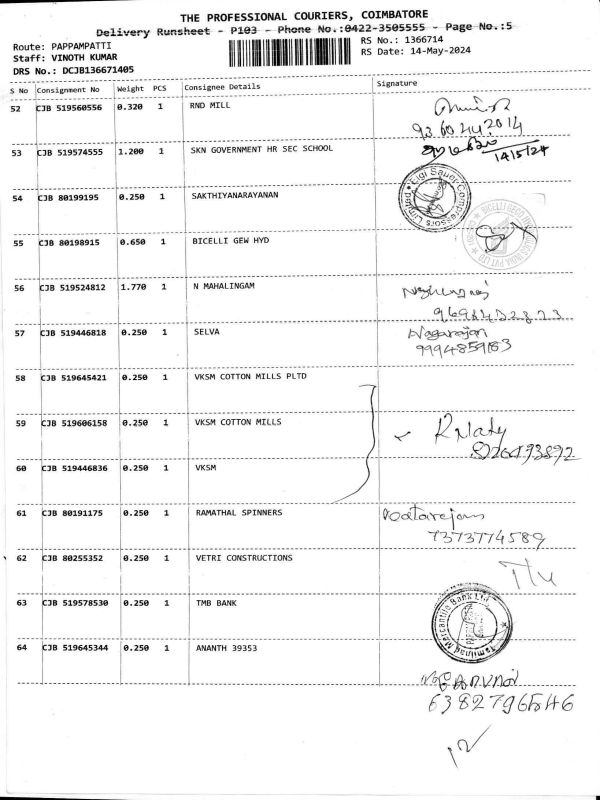 THE PROFESSIONAL COURIERS, COIMBATORE
Delivery Runsheet - P103 - Phone No.:0422-3505555 - Page No.:5
Route: PAPPAMPATTI
RS No.: 1366714
Staff: VINOTH KUMAR
RS Date: 14-May-2024
DRS No.: DCJB136671405
S No Consignment No Weight PCS Consignee Details Signature
52 CJB 519560556 0.320 1 RND MILL
93 60 44 2014
53 CJB 519574555 1.200 1 SKN GOVERNMENT HR SEC SCHOOL
14/5/24
54 CJB 80199195 0.250 1 SAKTHIYANARAYANAN
Gigi Sauer Compressors Limited
55 CJB 80198915 0.650 1 BICELLI GEW HYD
56 CJB 519524812 1.770 1 N MAHALINGAM
57 CJB 519446818 0.250 1 SELVA Nagarajan
9994859183
58 CJB 519645421 0.250 1 VKSM COTTON MILLS PLTD
59 CJB 519606158 0.250 1 VKSM COTTON MILLS
60 CJB 519446836 0.250 1 VKSM
61 CJB 80191175 0.250 1 RAMATHAL SPINNERS
7373774589
62 CJB 80255352 0.250 1 VETRI CONSTRUCTIONS
63 CJB 519578530 0.250 1 TMB BANK
Tamilnad Mercantile Bank Ltd
64 CJB 519645344 0.250 1 ANANTH 39353
6382796546
12